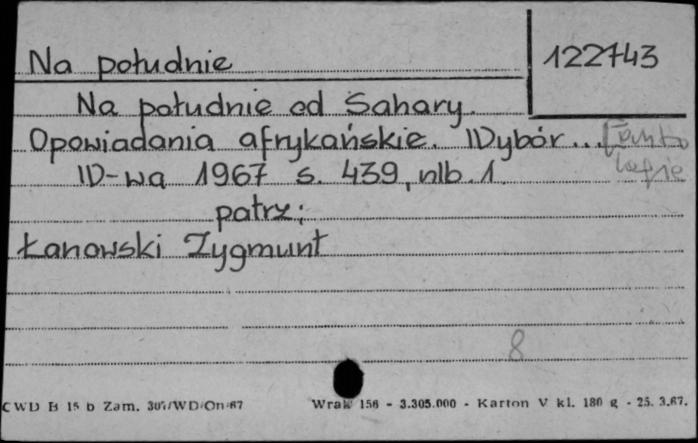 Na południe
122743
Na południe od Sahary.
Opowiadania afrykańskie. Wybór...
W-wa 1967 s. 439, nlb. 1.
patrz:
Łanowski Zygmunt
8
CWD B 15 b Zam. 307/WD/On/67 Wrak 156 - 3.305.000 - Karton V kl. 180 g - 25. 3.67.